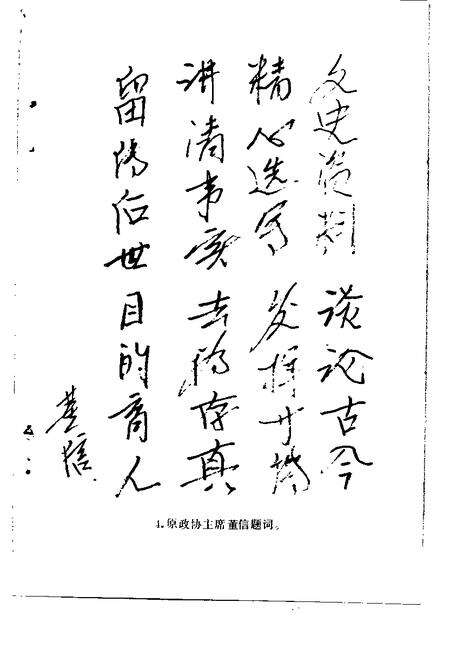 文史资料 谈论古今
精心选写 发挥
讲清事实 去伪存真
留传后世 目的育人
董信
4.原政协主席董信题词。